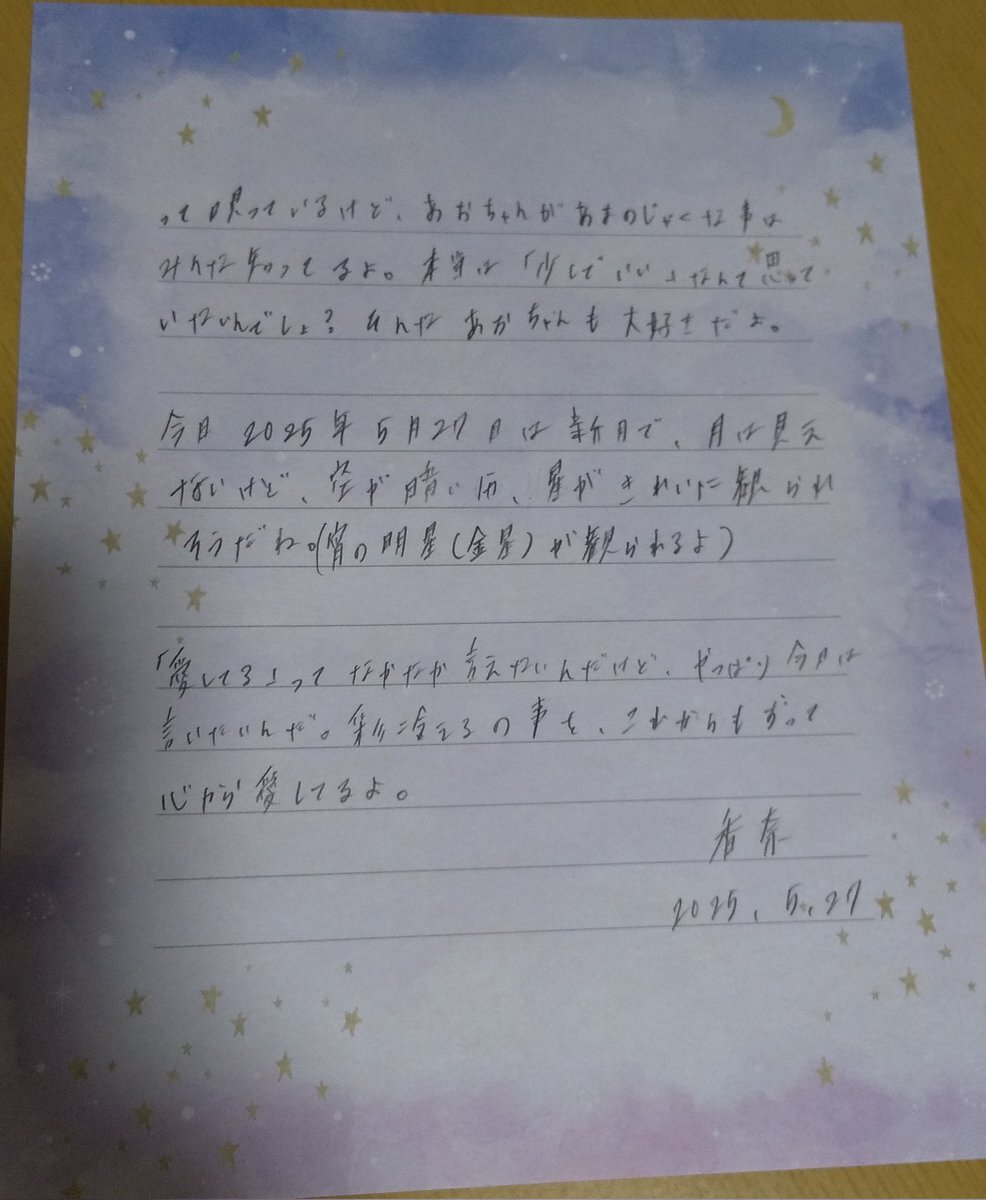 って唄っているけど、あおちゃんがあまのじゃくな事は
みんな知ってるよ。本当は「少しでいい」なんて思って
いないんでしょ？そんなあおちゃんも大好きだよ。
今日2025年5月27日は新月で、月は見え
ないけど、空が晴い历、星がきれいに観られ
そうだね。(宵の明星(金星)が観られるよ)
「愛してる」ってなかなか言えないんだけど、やっぱり今日は
言いたいんだ。の事を、これからもずって
心から愛してるよ。
香奈
2025.5.27